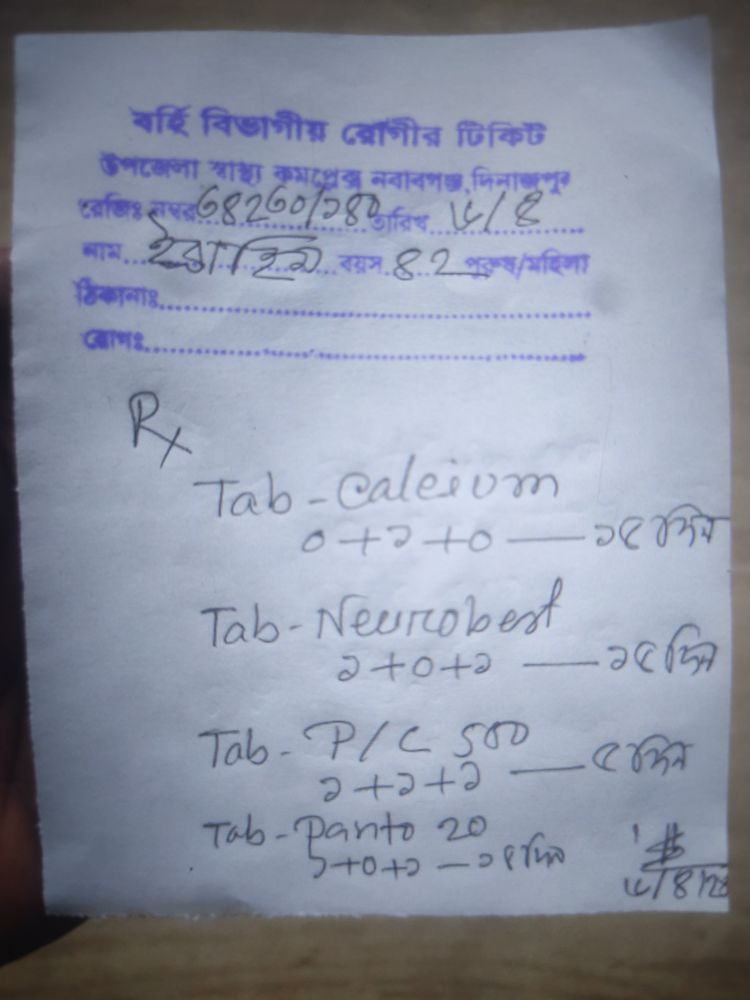 বর্হি বিভাগীয় রোগীর টিকিট
উপজেলা স্বাস্থ্য কমপ্লেক্স নবাবগঞ্জ, দিনাজপুর
রেজিঃ নম্বর ৬৪২৬০/১৪০ তারিখ ৮/৪
নাম... ইব্রাহিম ... বয়স ৪২ পুরুষ/মহিলা
ঠিকানাঃ
রোগঃ
Rx
Tab - Calcium
০+১+০ — ১৫ দিন
Tab - Neurobest
১+০+১ — ১৫ দিন
Tab - P/C 500
১+১+১ — ৫ দিন
Tab - Panto 20
১+০+১ — ১৫ দিন